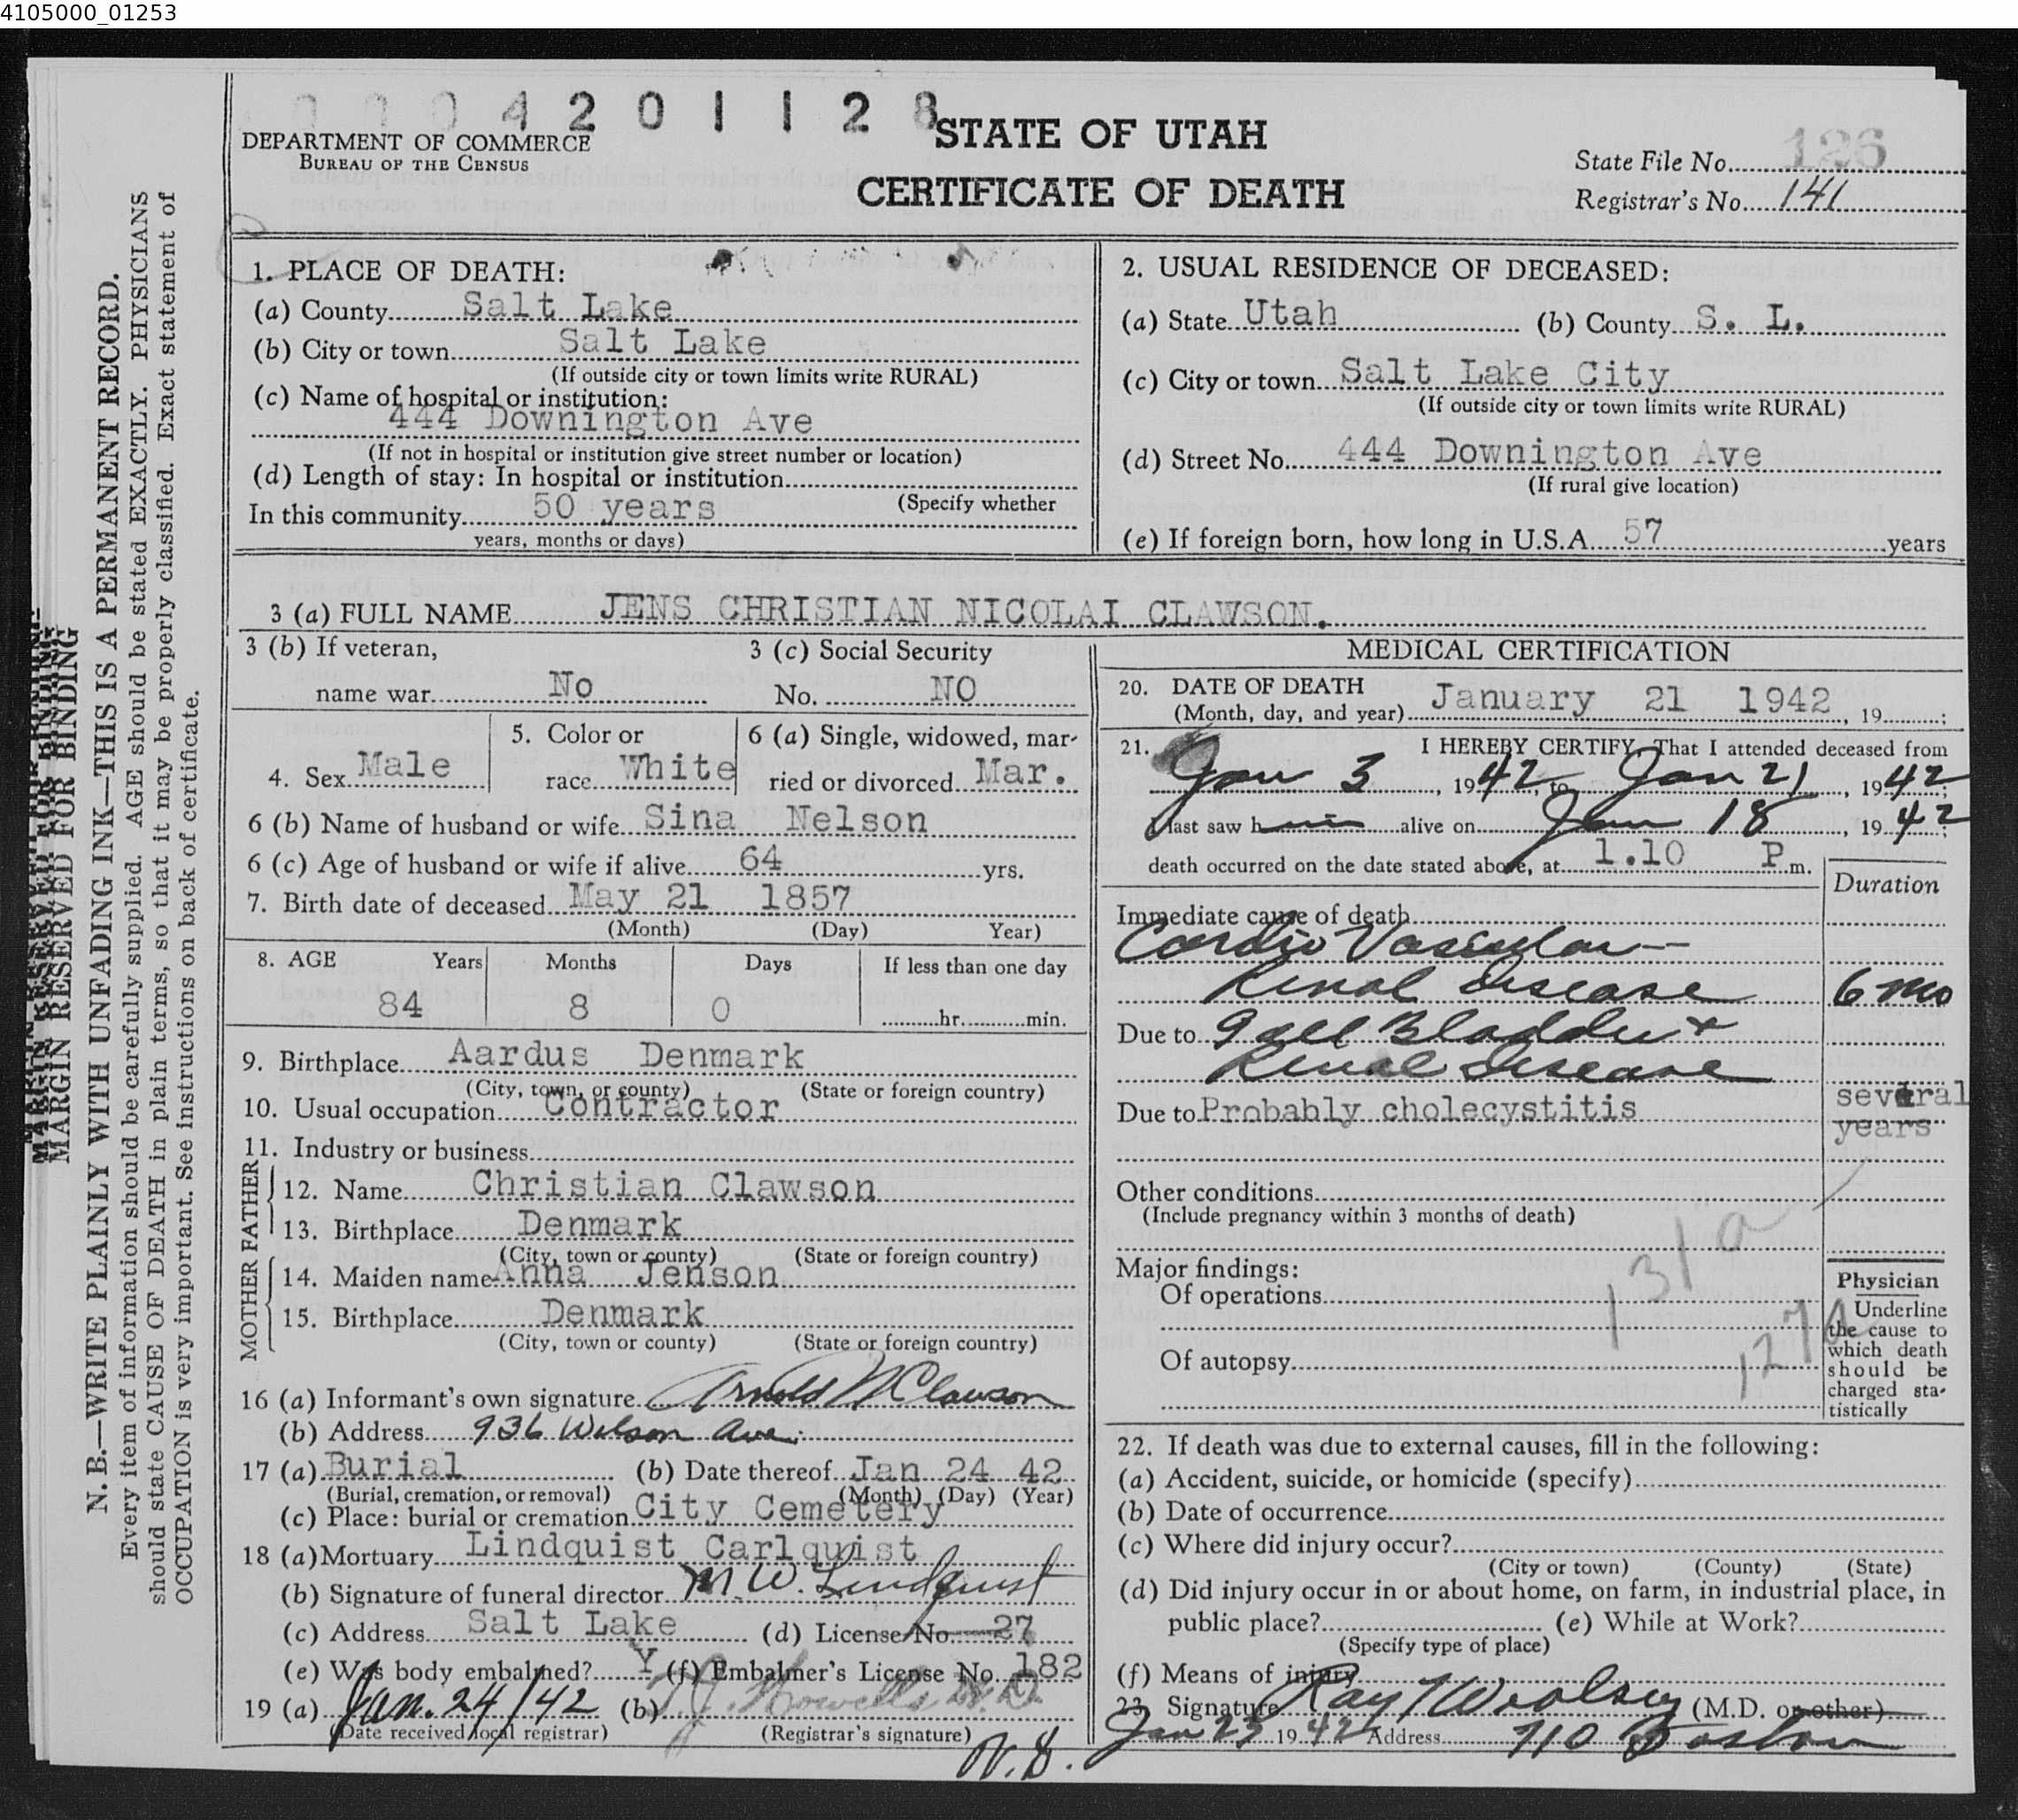 4105000_01253
0004201128
DEPARTMENT OF COMMERCE
BUREAU OF THE CENSUS
STATE OF UTAH
CERTIFICATE OF DEATH
State File No. 126
Registrar's No. 141
MARGIN RESERVED FOR BINDING
N. B.—WRITE PLAINLY WITH UNFADING INK—THIS IS A PERMANENT RECORD.
Every item of information should be carefully supplied. AGE should be stated EXACTLY. PHYSICIANS
should state CAUSE OF DEATH in plain terms, so that it may be properly classified. Exact statement of
OCCUPATION is very important. See instructions on back of certificate.
1. PLACE OF DEATH:
(a) County Salt Lake
(b) City or town Salt Lake
(If outside city or town limits write RURAL)
(c) Name of hospital or institution:
444 Downington Ave
(If not in hospital or institution give street number or location)
(d) Length of stay: In hospital or institution
In this community 50 years (Specify whether
years, months or days)
2. USUAL RESIDENCE OF DECEASED:
(a) State Utah (b) County S. L.
(c) City or town Salt Lake City
(If outside city or town limits write RURAL)
(d) Street No. 444 Downington Ave
(If rural give location)
(e) If foreign born, how long in U.S.A. 57 years
3 (a) FULL NAME JENS CHRISTIAN NICOLAI CLAWSON.
3 (b) If veteran, name war No
3 (c) Social Security No. NO
4. Sex Male
5. Color or race White
6 (a) Single, widowed, married or divorced Mar.
6 (b) Name of husband or wife Sina Nelson
6 (c) Age of husband or wife if alive 64 yrs.
7. Birth date of deceased May 21 1857
(Month) (Day) Year)
8. AGE Years Months Days If less than one day
84 8 0 hr. min.
9. Birthplace Aardus Denmark
(City, town, or county) (State or foreign country)
10. Usual occupation Contractor
11. Industry or business
FATHER
12. Name Christian Clawson
13. Birthplace Denmark
(City, town or county) (State or foreign country)
MOTHER
14. Maiden name Anna Jenson
15. Birthplace Denmark
(City, town or county) (State or foreign country)
16 (a) Informant's own signature Arnold N Clawson
(b) Address 936 Wilson Ave.
17 (a) Burial (b) Date thereof Jan 24 42
(Burial, cremation, or removal) (Month) (Day) (Year)
(c) Place: burial or cremation City Cemetery
18 (a) Mortuary Lindquist Carlquist
(b) Signature of funeral director M W. Lindquist
(c) Address Salt Lake (d) License No. 27
(e) Was body embalmed? Y (f) Embalmer's License No. 182
19 (a) Jan. 24/42 (b) T. J. Howells M.D.
(Date received local registrar) (Registrar's signature)
MEDICAL CERTIFICATION
20. DATE OF DEATH
(Month, day, and year) January 21 1942, 19 ;
21. I HEREBY CERTIFY, That I attended deceased from
Jan 3, 1942, to Jan 21, 1942;
I last saw him alive on Jan 18, 1942
death occurred on the date stated above, at 1.10 P.m.
Duration
Immediate cause of death
Cardio Vascular—
Renal disease 6 mo
Due to Gall Bladder +
Renal disease
Due to Probably cholecystitis several
years
Other conditions
(Include pregnancy within 3 months of death)
131a
Major findings:
Of operations
127a
Of autopsy
Physician
Underline
the cause to
which death
should be
charged sta-
tistically
22. If death was due to external causes, fill in the following:
(a) Accident, suicide, or homicide (specify)
(b) Date of occurrence
(c) Where did injury occur?
(City or town) (County) (State)
(d) Did injury occur in or about home, on farm, in industrial place, in
public place? (e) While at Work?
(Specify type of place)
(f) Means of injury
23. Signature Ray T Woolsey (M.D. or other)
Jan 23 1942 Address 710 Boston